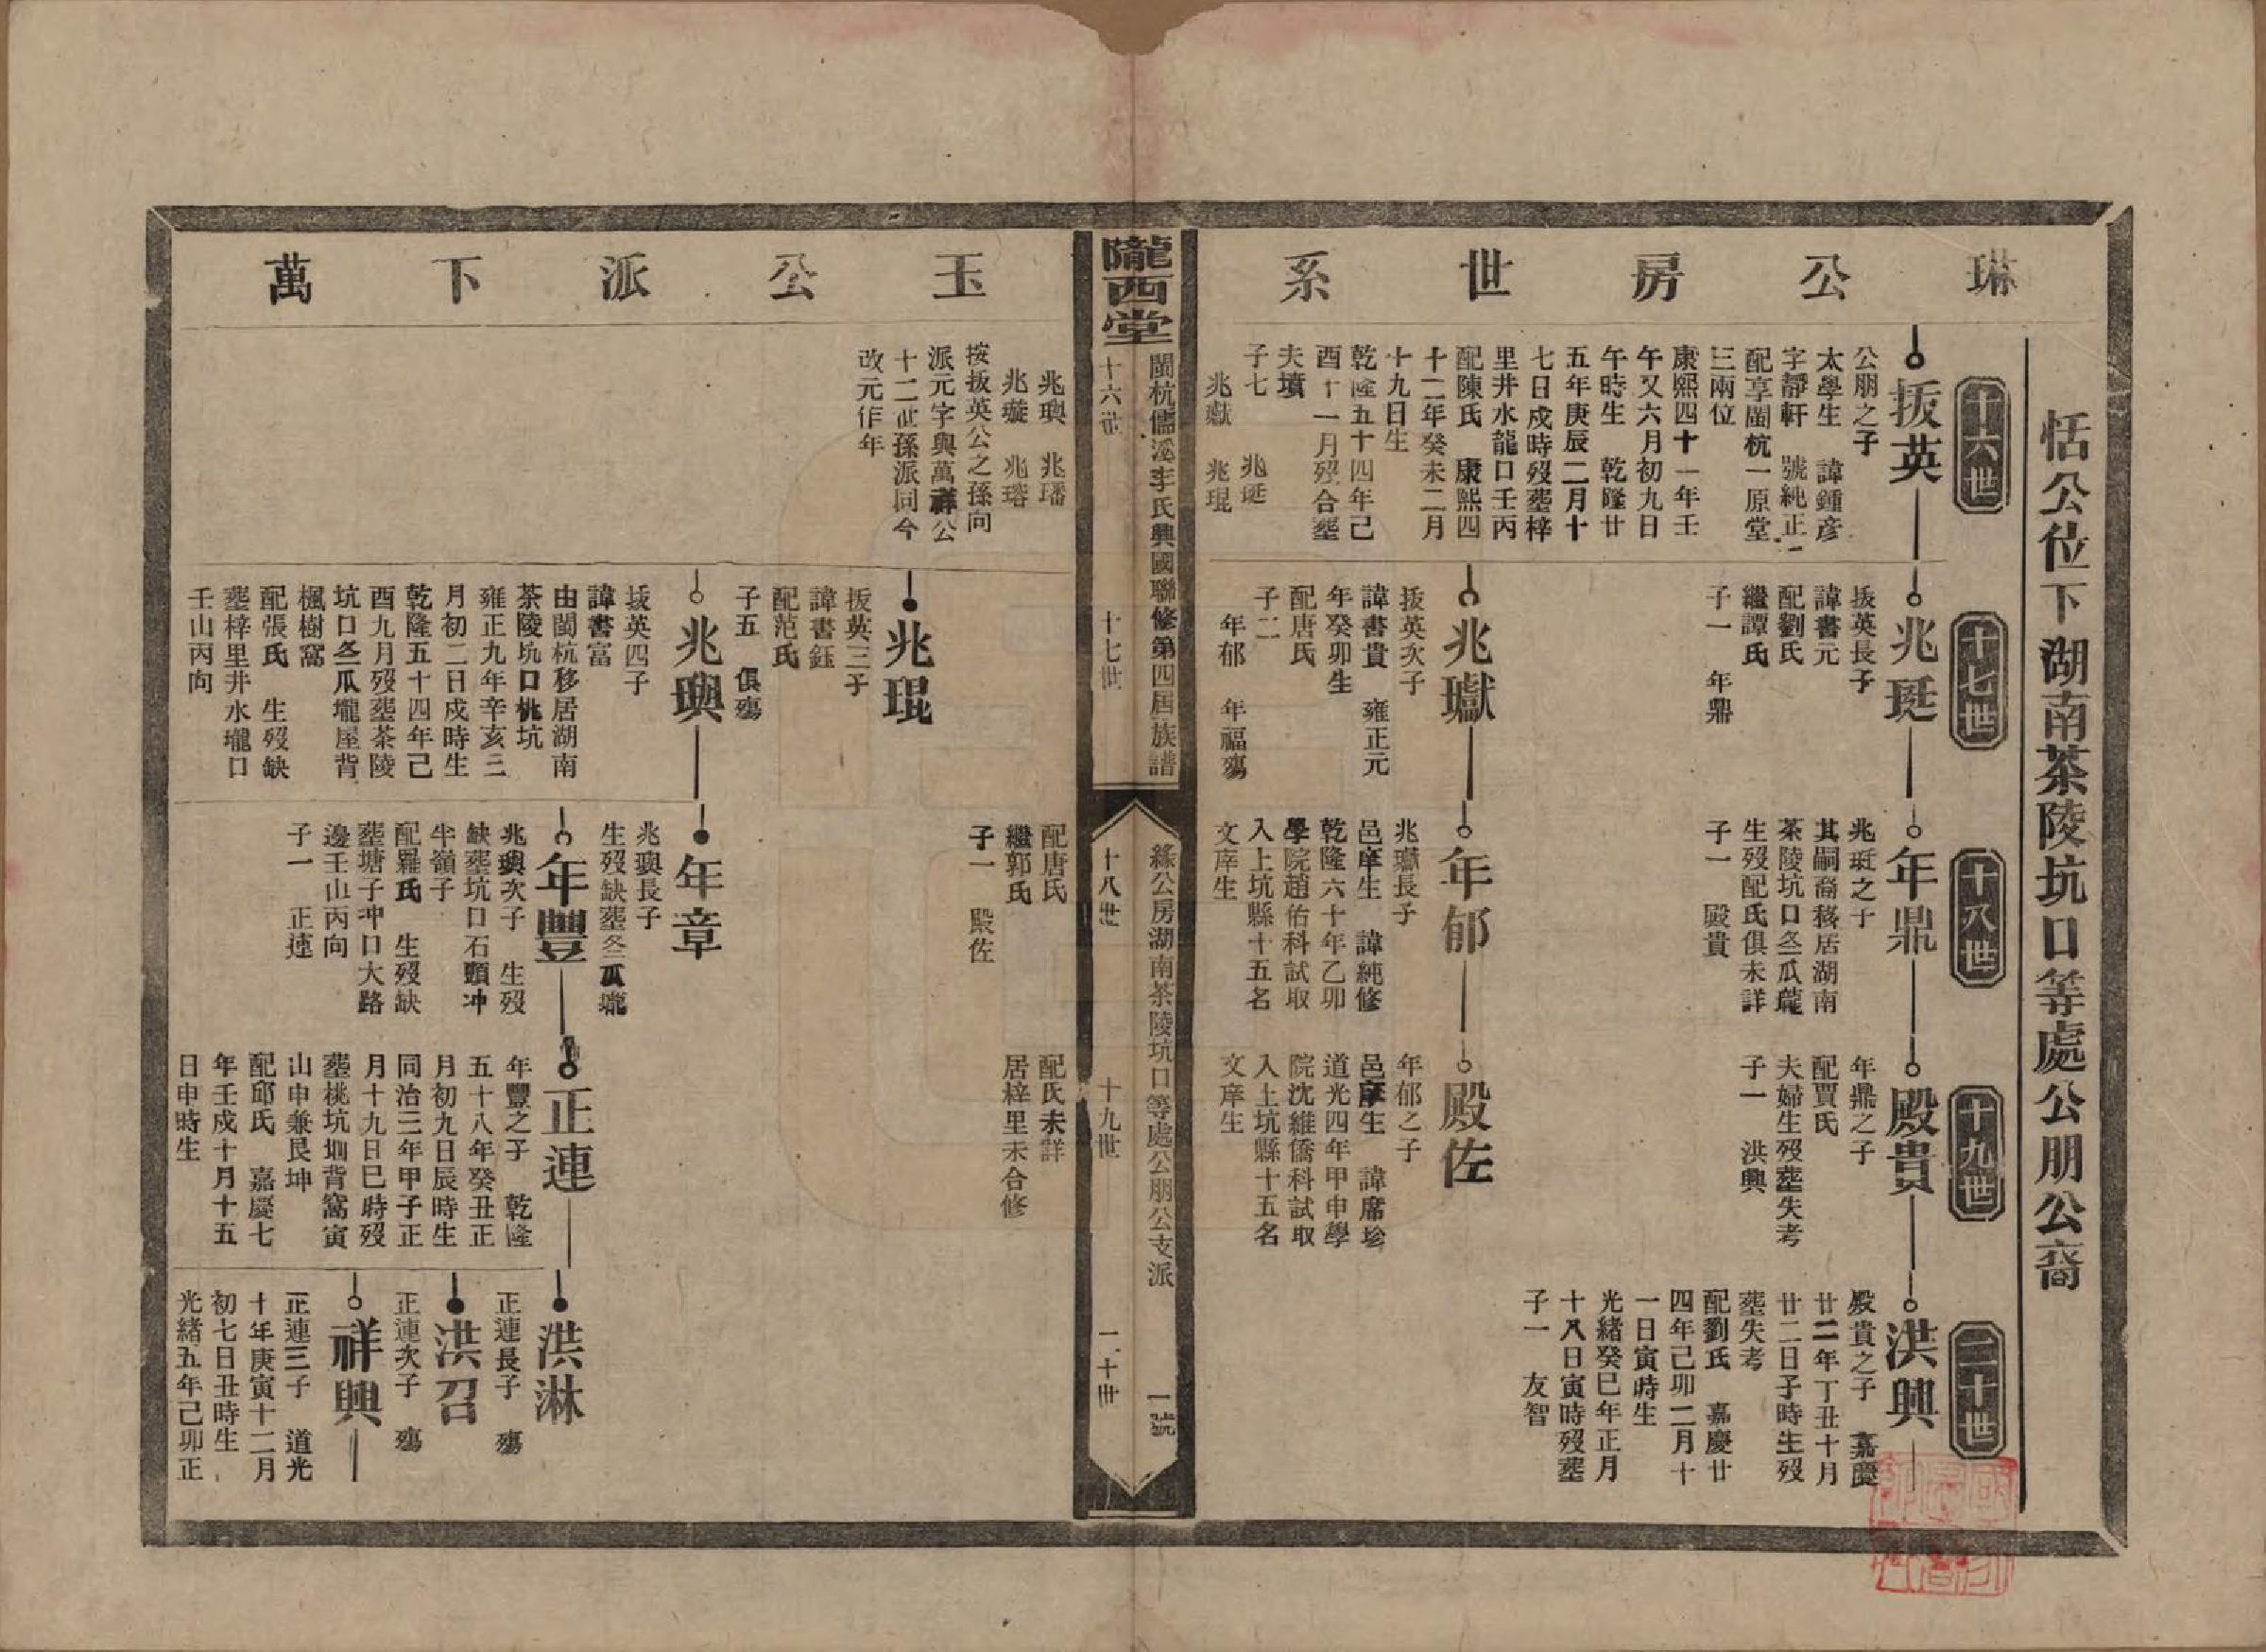 恬公位下湖南茶陵坑口等處公朋公裔
琳公房世系
十六世
十七世
十八世
十九世
二十世
拔英
公朋之子
太學生　諱鍾彥
字靜軒　號純正
配享閩杭一原堂
三兩位
康熙四十一年壬
午又六月初九日
午時生　乾隆廿
五年庚辰二月十
七日戍時歿塟梓
里井水龍口壬丙
配陳氏　康熙四
十二年癸未二月
十九日生
乾隆五十四年己
酉十一月歿合塟
夫墳
子七　兆珽
兆瓛　兆琨
兆珽
拔英長子
諱書元
配劉氏
繼譚氏
子一　年鼎
兆瓛
拔英次子
諱書貴　雍正元
年癸卯生
配唐氏
子二
年郁　年福殤
年鼎
兆珽之子
其嗣裔移居湖南
茶陵坑口冬瓜壠
生歿配氏俱未詳
子一　殿貴
年郁
兆瓛長子
邑庠生　諱純修
乾隆六十年乙卯
學院趙佑科試取
入上坑縣十五名
文庠生
殿貴
年鼎之子
配賈氏
夫婦生歿塟失考
子一　洪興
殿佐
年郁之子
邑庠生　諱席珍
道光四年甲申學
院沈維僑科試取
入上坑縣十五名
文庠生
洪興
殿貴之子　嘉慶
廿二年丁丑十月
廿二日子時生歿
塟失考
配劉氏　嘉慶廿
四年己卯二月十
一日寅時生
光緒癸巳年正月
十八日寅時歿塟
子一　友智
隴西堂
閩杭儒溪李氏興國聯修第四屆族譜
十六世
十七世
十八世
十九世
二十世
縧公房湖南茶陵坑口等處公朋公支派
一號
玉公派下萬
兆璵　兆璠
兆璇　兆瑢
按拔英公之孫向
派元字與萬祥公
十二世孫派同今
改元作年
兆琨
拔英三子
諱書鈺
配范氏
子五　俱殤
兆璵
拔英四子
諱書富
由閩杭移居湖南
茶陵坑口桃坑
雍正九年辛亥三
月初二日戍時生
乾隆五十四年己
酉九月歿塟茶陵
坑口冬瓜壠屋背
楓樹窩
配張氏　生歿缺
塟梓里井水瓏口
壬山丙向
配唐氏
繼郭氏
子一　殿佐
年章
兆璵長子
生歿缺塟冬瓜壠
年豐
兆璵次子　生歿
缺塟坑口石頭冲
半嶺子
配羅氏　生歿缺
塟塘子冲口大路
邊壬山丙向
子一　正連
配氏未詳
居梓里未合修
正連
年豐之子　乾隆
五十八年癸丑正
月初九日辰時生
同治三年甲子正
月十九日巳時歿
塟桃坑垇背窩寅
山申兼艮坤
配邱氏　嘉慶七
年壬戍十月十五
日申時生
洪淋
正連長子　殤
洪召
正連次子　殤
祥興
正連三子　道光
十年庚寅十二月
初七日丑時生
光緒五年己卯正